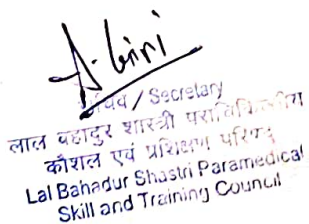 A. Giri
सचिव / Secretary
लाल बहादुर शास्त्री पराचिकित्सीय
कौशल एवं प्रशिक्षण परिषद्
Lal Bahadur Shastri Paramedical
Skill and Training Council